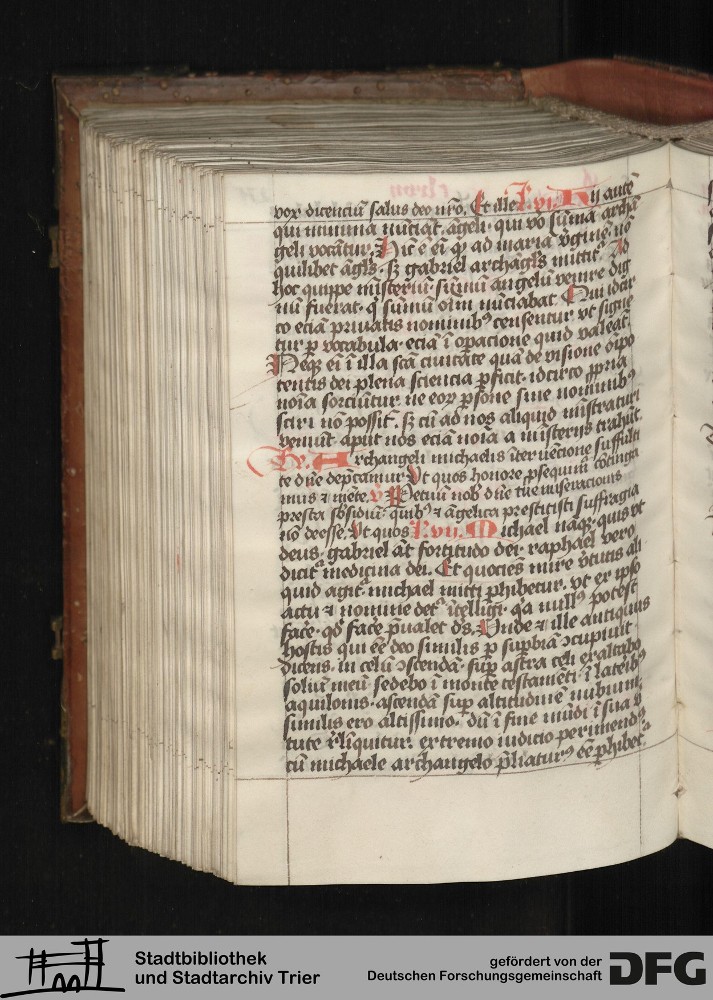 vox dicenciū salus deo nr̄o. Et ille L. vi. Hij autē
qui minima nūciāt. āgeli. qui v̄o sūma archā
geli vocātur. Hic ē eī ꝙ ad mariā v̄gīnē. nō
quilibet āgl̄s. sꝫ gabriel archāgl̄s mittit̄. Ad
hoc quippe mīsteriū. sūmū angelū venire dig
nū fuerat. q̄ sūmū oīm nūciabat. Qui idcir
co eciā priuatis nominibꝰ censentur. vt signe
tur ꝑ vocabula. eciā ī opacione quid valeāt.
Neqꝫ eī ī illa scā ciuitate quā de visione oīpo
tentis dei plena sciencia ꝑficit. idcirco ꝓpria
noīa sorciūtur. ne eoꝝ ꝑsone sine nominibꝰ
sciri nō possīt. sꝫ cū ad nos aliquid mīstraturi
veniūt. aput nos eciā noīa a mīsterijs trahūt.
Archangeli michaelis īteruēcione suffulti
te dn̄e dep̄camur Vt quos honore ꝓsequimr̄ cōtinga
mus ⁊ mēte. v̄ Petimꝰ nob̄ dn̄e tue miseracionis
presta sb̄sidiū. quibꝰ ⁊ āgelica prestitisti suffragia
nō deesse. Vt quos L. vii. Michael nāqꝫ. quis vt
deus. gabriel āt fortitudo dei. raphael vero
dicit̄ medicina dei. Et quociēs mire v̄tutis ali
quid agit̄. michael mitti ꝑhibetur. vt ex ip̄o
actu ⁊ nomine det̄ ītelligi. q̄a nullꝰ potest
facē. qd̄ facē p̄ualet dꝰ. Vnde ⁊ ille antiquus
hostis qui eē deo similis ꝑ sup̄biā ꝯcupiuit.
dicens. in celū ꝯscendā. suꝑ astra celi exaltabo
soliū meū sedebo ī monte testamēti. ī lateribꝰ
aquilonis. ascendā suꝑ altitudinē nubium.
similis ero altissimo. dū ī fine mūdi ī sua v̄
tute r̄līquitur. extremo iudicio perimendꝰ.
cū michaele archangelo p̄liaturꝰ eē ꝑhibet̄.
Stadtbibliothek
und Stadtarchiv Trier
gefördert von der
Deutschen Forschungsgemeinschaft
DFG